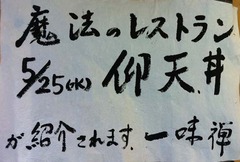 魔法のレストラン
5/25(水) 仰天丼
が紹介されます。一味禅